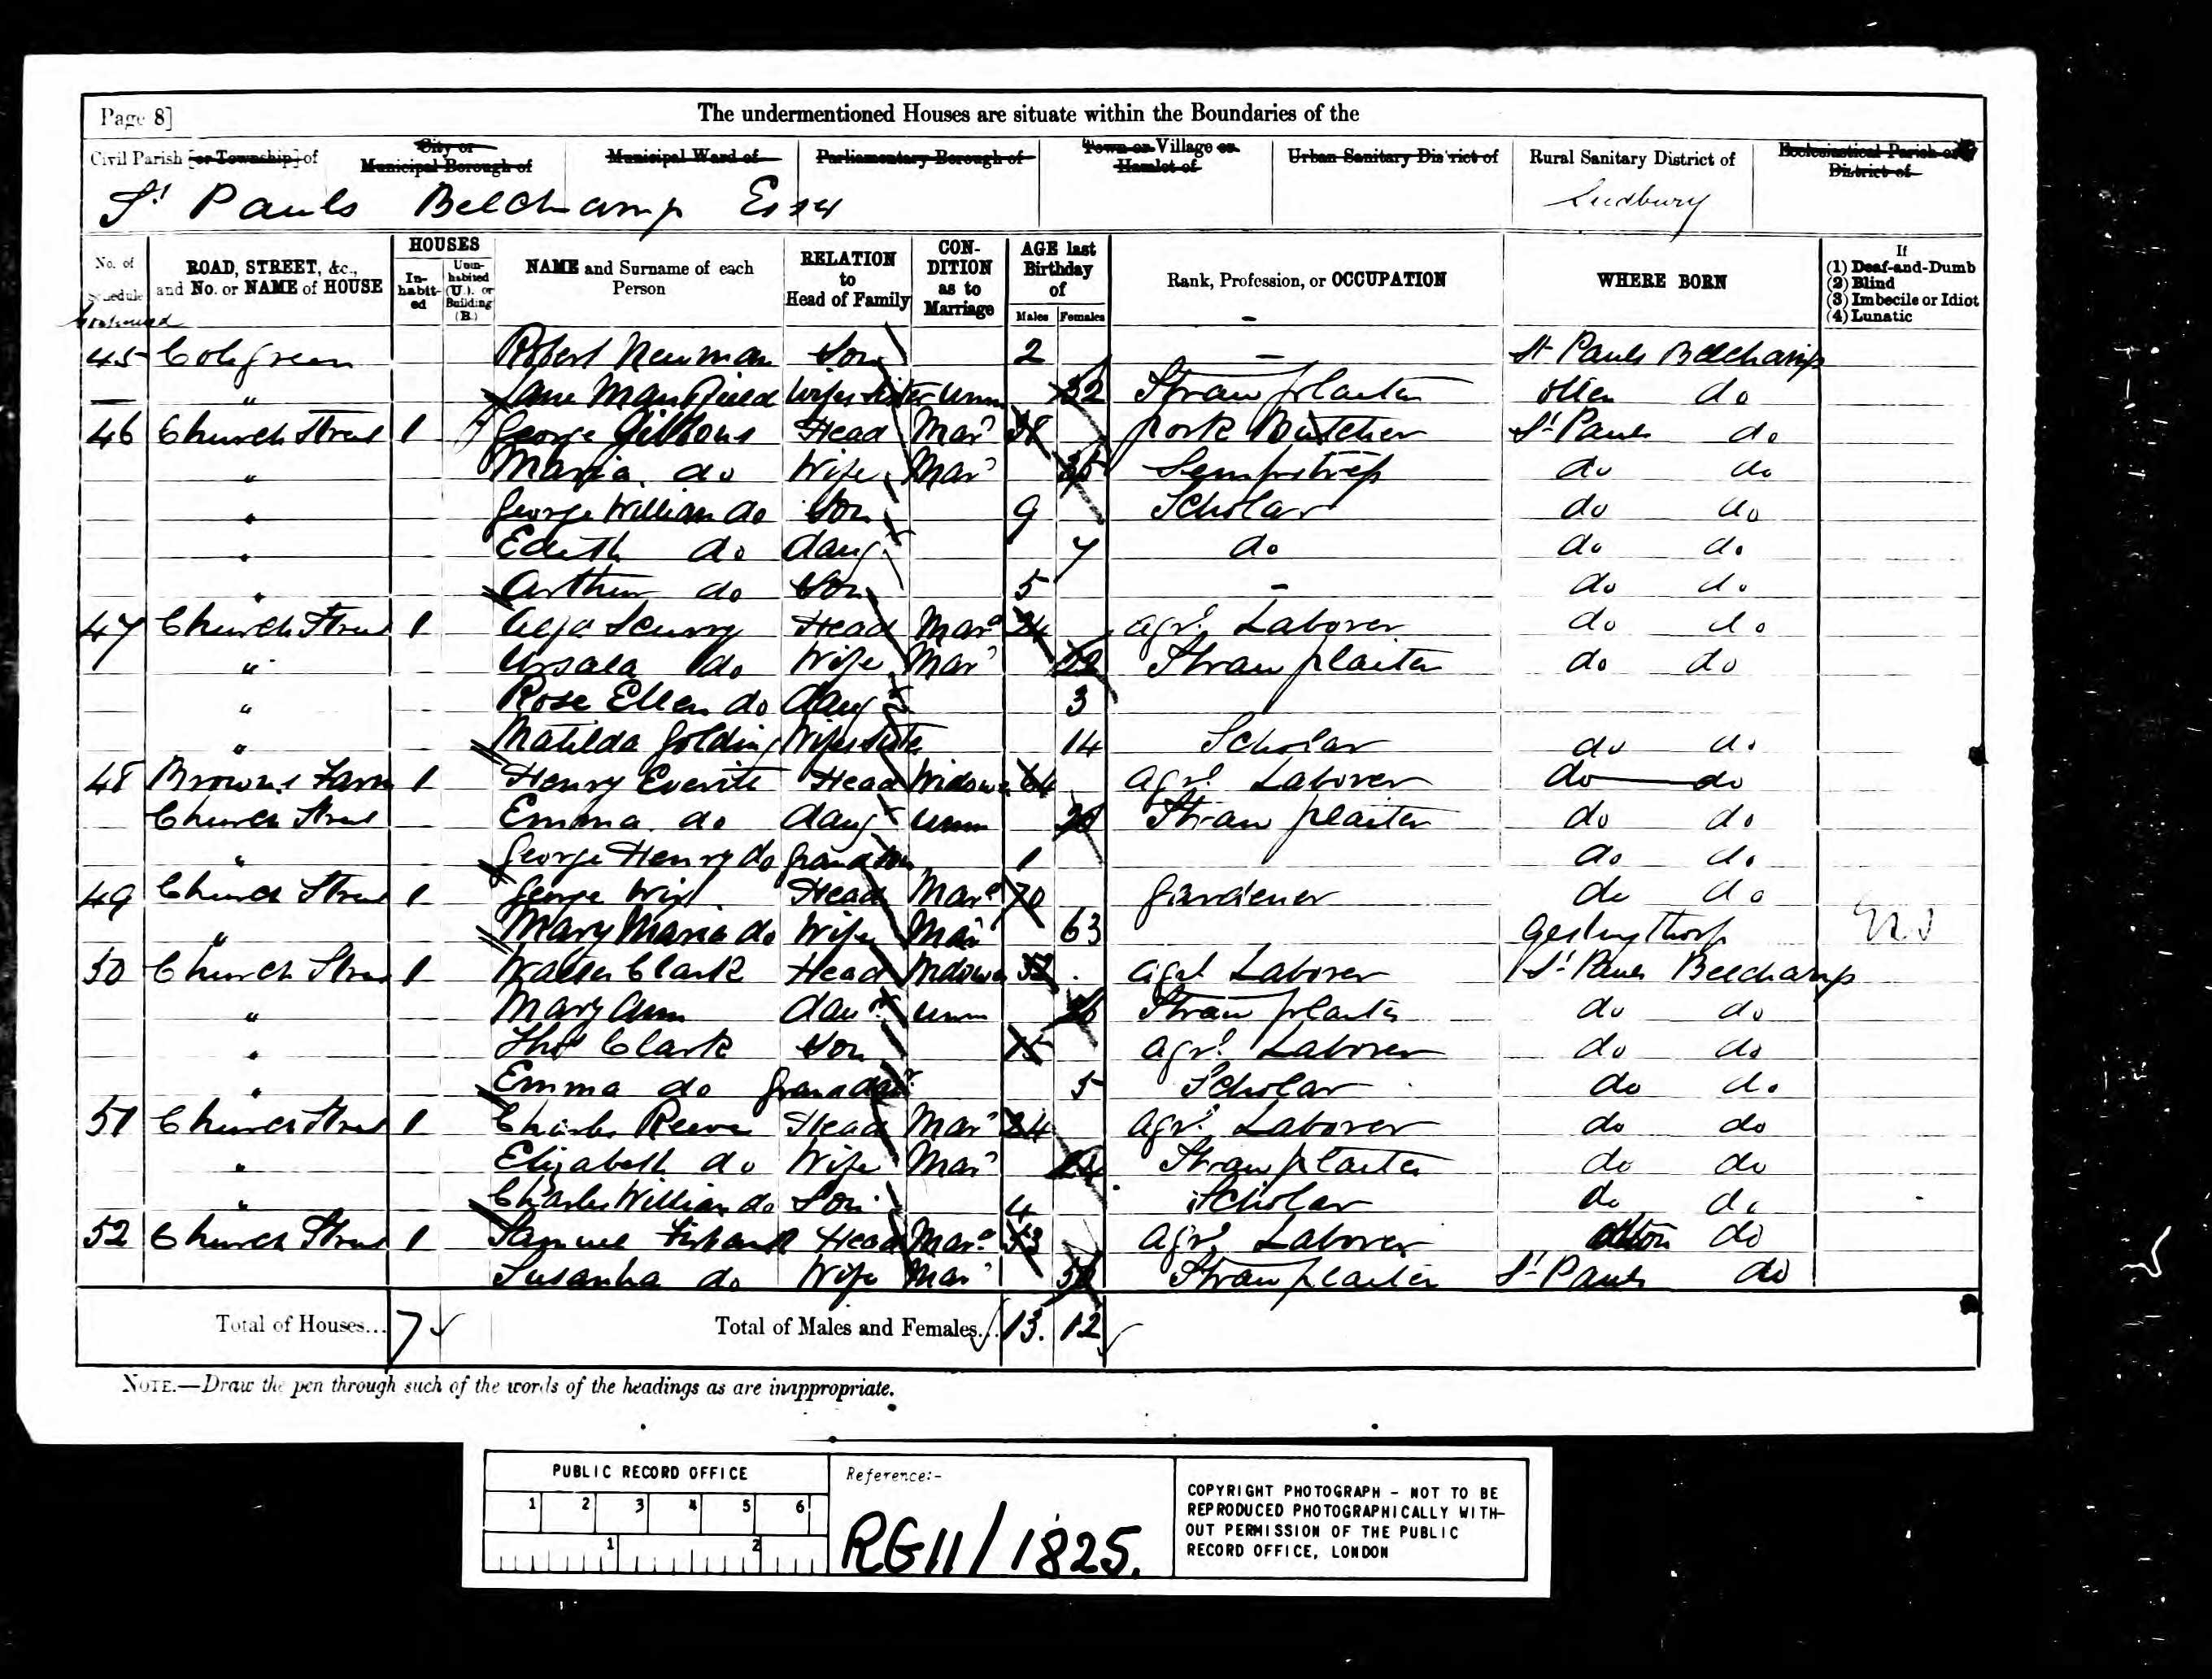 Page 8]
The undermentioned Houses are situate within the Boundaries of the
Civil Parish [or Township] of City or Municipal Borough of Municipal Ward of Parliamentary Borough of Town or Village or Hamlet of Urban Sanitary District of Rural Sanitary District of Ecclesiastical Parish or District of
St Pauls Belchamp Essex Sudbury
No. of Schedule ROAD, STREET, &c., and No. or NAME of HOUSE HOUSES Inhabited Uninhabited (U.), or Building (B.) NAME and Surname of each Person RELATION to Head of Family CONDITION as to Marriage AGE last Birthday of Males Females Rank, Profession, or OCCUPATION WHERE BORN If (1) Deaf-and-Dumb (2) Blind (3) Imbecile or Idiot (4) Lunatic
45 Robert Newman Son 2 - St Pauls Belchamp
— " Jane Mansfield Wifes Sister Unm 32 Straw plaiter Otten do
46 Church Street 1 George Gibbons Head Mard 38 Pork Butcher St Pauls do
" Maria do Wife Mard 35 Sempstress do do
" George William do Son 9 Scholar do do
" Edith do daug 7 do do do
" Arthur do Son 5 - do do
47 Church Street 1 Head Mard 24 agrl Laborer do do
" Ursala do Wife Mard 22 Straw plaiter do do
" Rose Ellen do daug 3
" Matilda Golding Wifes Sister 14 Scholar do do
48 Browns Farm 1 Henry Everitt Head Widower 64 agrl Laborer do do
Church Street Emma do daugr Unm Straw plaiter do do
" George Henry do Grandson 1 do do
49 Church Street 1 George Head Mard 70 Gardener do do
" Mary Maria do Wife Mard 63 Gestingthorp
50 Church Street 1 Walter Clark Head Widower agrl Laborer St Pauls Belchamp
" Mary Ann daur Unm Straw plaiter do do
" Thos Clark Son 15 agrl Laborer do do
" Emma do Grandaur 5 Scholar do do
51 Church Street 1 Charles Reeve Head Mard 24 agrl Laborer do do
" Elizabeth do Wife Mard 24 Straw plaiter do do
" Charles William do Son 4 Scholar do do
52 Church Street 1 Samuel Head Mard 53 agrl Laborer do
Susanha do Wife Mard Straw plaiter St Pauls do
Total of Houses... 7 Total of Males and Females... 13. 12
NOTE.—Draw the pen through such of the words of the headings as are inappropriate.
PUBLIC RECORD OFFICE
1 2 3 4 5 6
1 2
Reference:-
RG11/1825.
COPYRIGHT PHOTOGRAPH - NOT TO BE
REPRODUCED PHOTOGRAPHICALLY WITH-
OUT PERMISSION OF THE PUBLIC
RECORD OFFICE, LONDON